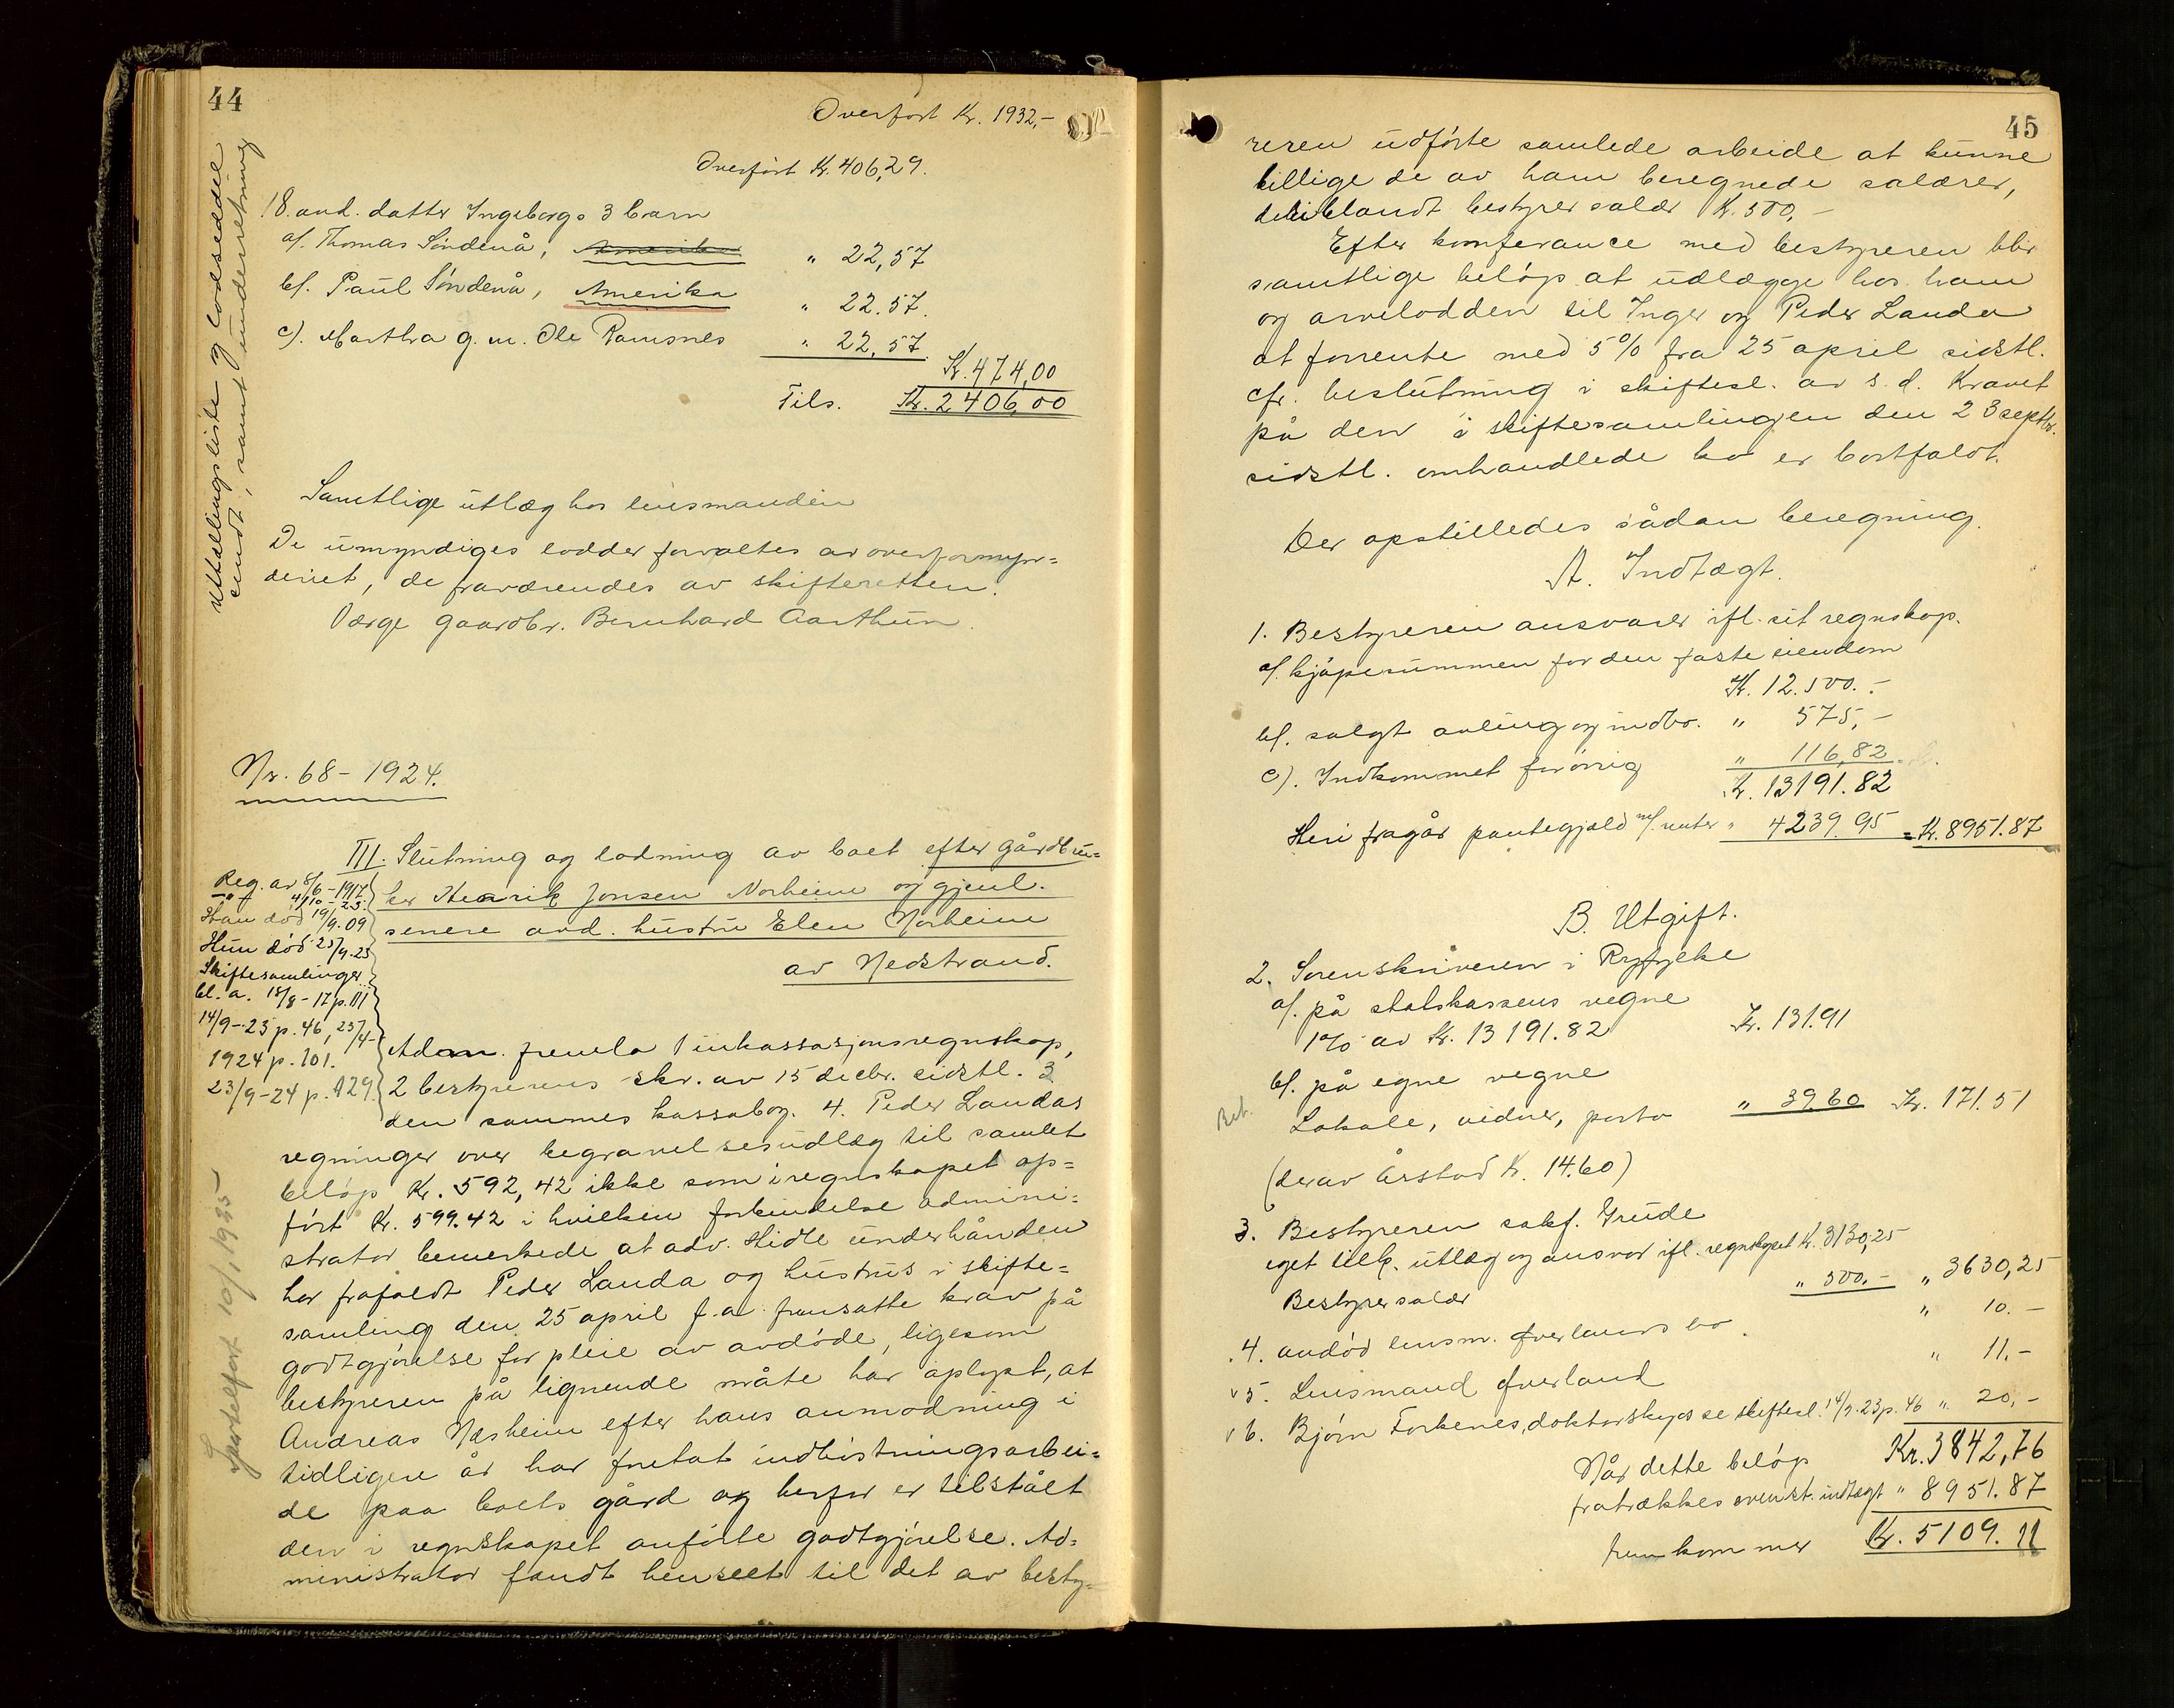 44
Overført Kr. 1932,-
Overført Kr. 406,29.
Uttællingsliste og lodseddel
sendt, samt underretning
18. avd. datter Ingeborgs 3 barn
a/. Thomas Søndenå, Amerika " 22,57
b/. Paul Søndenå, Amerika " 22.57.
c). Martha g. m. Ole Ramsnes " 22,57
Kr. 474,00
Tils. Kr. 2406,00
Samtlige utlæg hos lensmanden
De umyndiges lodder forvaltes av overformyn=
deriet, de fraværendes av skifteretten.
Værge gaardbr. Bernhard Aarthun.
Nr. 68 - 1924.
III. Slutning og lodning av boet efter gårdbru=
ker Henrik Jonsen Norheim og gjenl.
senere avd. hustru Elen Norheim
av Nedstrand.
Reg. av 8/6-1917
-"- 4/10-23.
Han død 19/9.09
Hun død 23/9.23
Skiftesamlinger
bl. a. 18/8-17 p. 111
14/9-23 p. 46, 25/4-
1924 p. 101.
23/9-24 p. 129.
Adm. fremla 1 inkassasjonsregnskap,
2 bestyrerens skr. av 15 decbr. sidstl. 3
den sammes kassabog. 4. Peder Landas
regninger over begravelsesudlæg til samlet
beløp Kr. 592,42 ikke som i regnskapet op=
ført Kr. 599.42 i hvilken forbindelse admini=
strator bemerkede at adv. Hidle underhånden
har frafaldt Peder Landa og hustrus i skifte=
samling den 25 april f. a. fremsatte krav på
godtgjørelse for pleie av avdøde, ligesom
bestyreren på lignende måte har oplyst, at
Andreas Norheim efter hans anmodning i
tidligere år har foretat indhøstningsarbei=
de paa boets gård og herfor er tilstået
den i regnskapet anførte godtgjørelse. Ad=
ministrator fandt henseet til det av besty=
Sportelført 10/1 1925
45
reren udførte samlede arbeide at kunne
billige de av ham beregnede salærer,
deriblandt bestyrersalær Kr. 500,-
Efter konferance med bestyreren blir
samtlige beløp at udlægge hos ham
og arvelodden til Inger og Peder Landa
at forrente med 5% fra 25 april sidstl.
cfr. beslutning i skiftesl. av s. d. Kravet
på den i skiftesamlingen den 23 septbr.
sidstl. omhandlede ko er bortfaldt.
Der opstilledes sådan beregning.
A. Indtægt.
1. Bestyreren ansvarer ifl. sit regnskap.
a/. kjøpesummen for den faste eiendom
Kr. 12.500.-
b/. solgt avling og indbo. " 575,-
c). Indkommet forøvrig " 116,82
Kr. 13191.82
Heri fragår pantegjæld m/. renter " 4239.95 = Kr. 8951.87
B. Utgift.
2. Sorenskriveren i Ryfylke
a/. på statskassens vegne
1% av Kr. 13191.82 Kr. 131.91
b/. på egne vegne
Bet. Lokale, vidner, porto " 39.60 Kr. 171.51
(derav Årstad Kr. 14.60)
3. Bestyreren sakf. Grude
eget tilk. utlæg og ansvar ifl. regnskapet Kr. 3130,25
Bestyrersalær " 500.- " 3630,25
4. avdød lensm. Øverlands bo. " 10.-
v 5. Lensmand Øverland " 11.-
v 6. Bjørn Torkenes, doktorskyss se skiftesl. 14/9.23 p. 46 " 20,-
Kr. 3842,76
Når dette beløp
fratrækkes ovenst. indtægt " 8951.87
fremkommer Kr. 5109.11